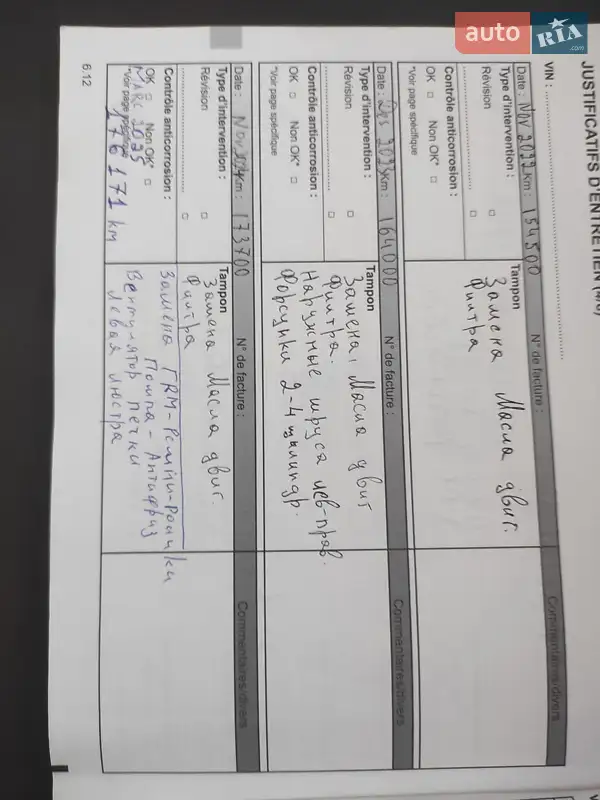 auto RIA.com
JUSTIFICATIFS D'ENTRETIEN
VIN :
Date : Nov 2022 Km : 154500
Type d'intervention :
Révision □
□
Contrôle anticorrosion :
OK □ Non OK* □
*Voir page spécifique
Tampon
N° de facture :
Замена Масла двиг.
Филтра
Commentaires/divers
Date : Des 2023 Km : 164000
Type d'intervention :
Révision □
□
Contrôle anticorrosion :
OK □ Non OK* □
*Voir page spécifique
Tampon
N° de facture :
Замена, Масла двиг
Филтра.
Наружные шруса лев-прав.
Форсунки 2-4 цилиндр.
Commentaires/divers
Date : Nov 2024 Km : 173700
Type d'intervention :
Révision □
□
Contrôle anticorrosion :
OK □ Non OK* □
*Voir page spécifique
Tampon
N° de facture :
Замена Масла двиг.
Филтра
Commentaires/divers
Març 2025
176171 km
Замена ГRM-Ремни-Ролики
Помпа-Антифриз
Вентулятор печки
Левая люстра
6.12